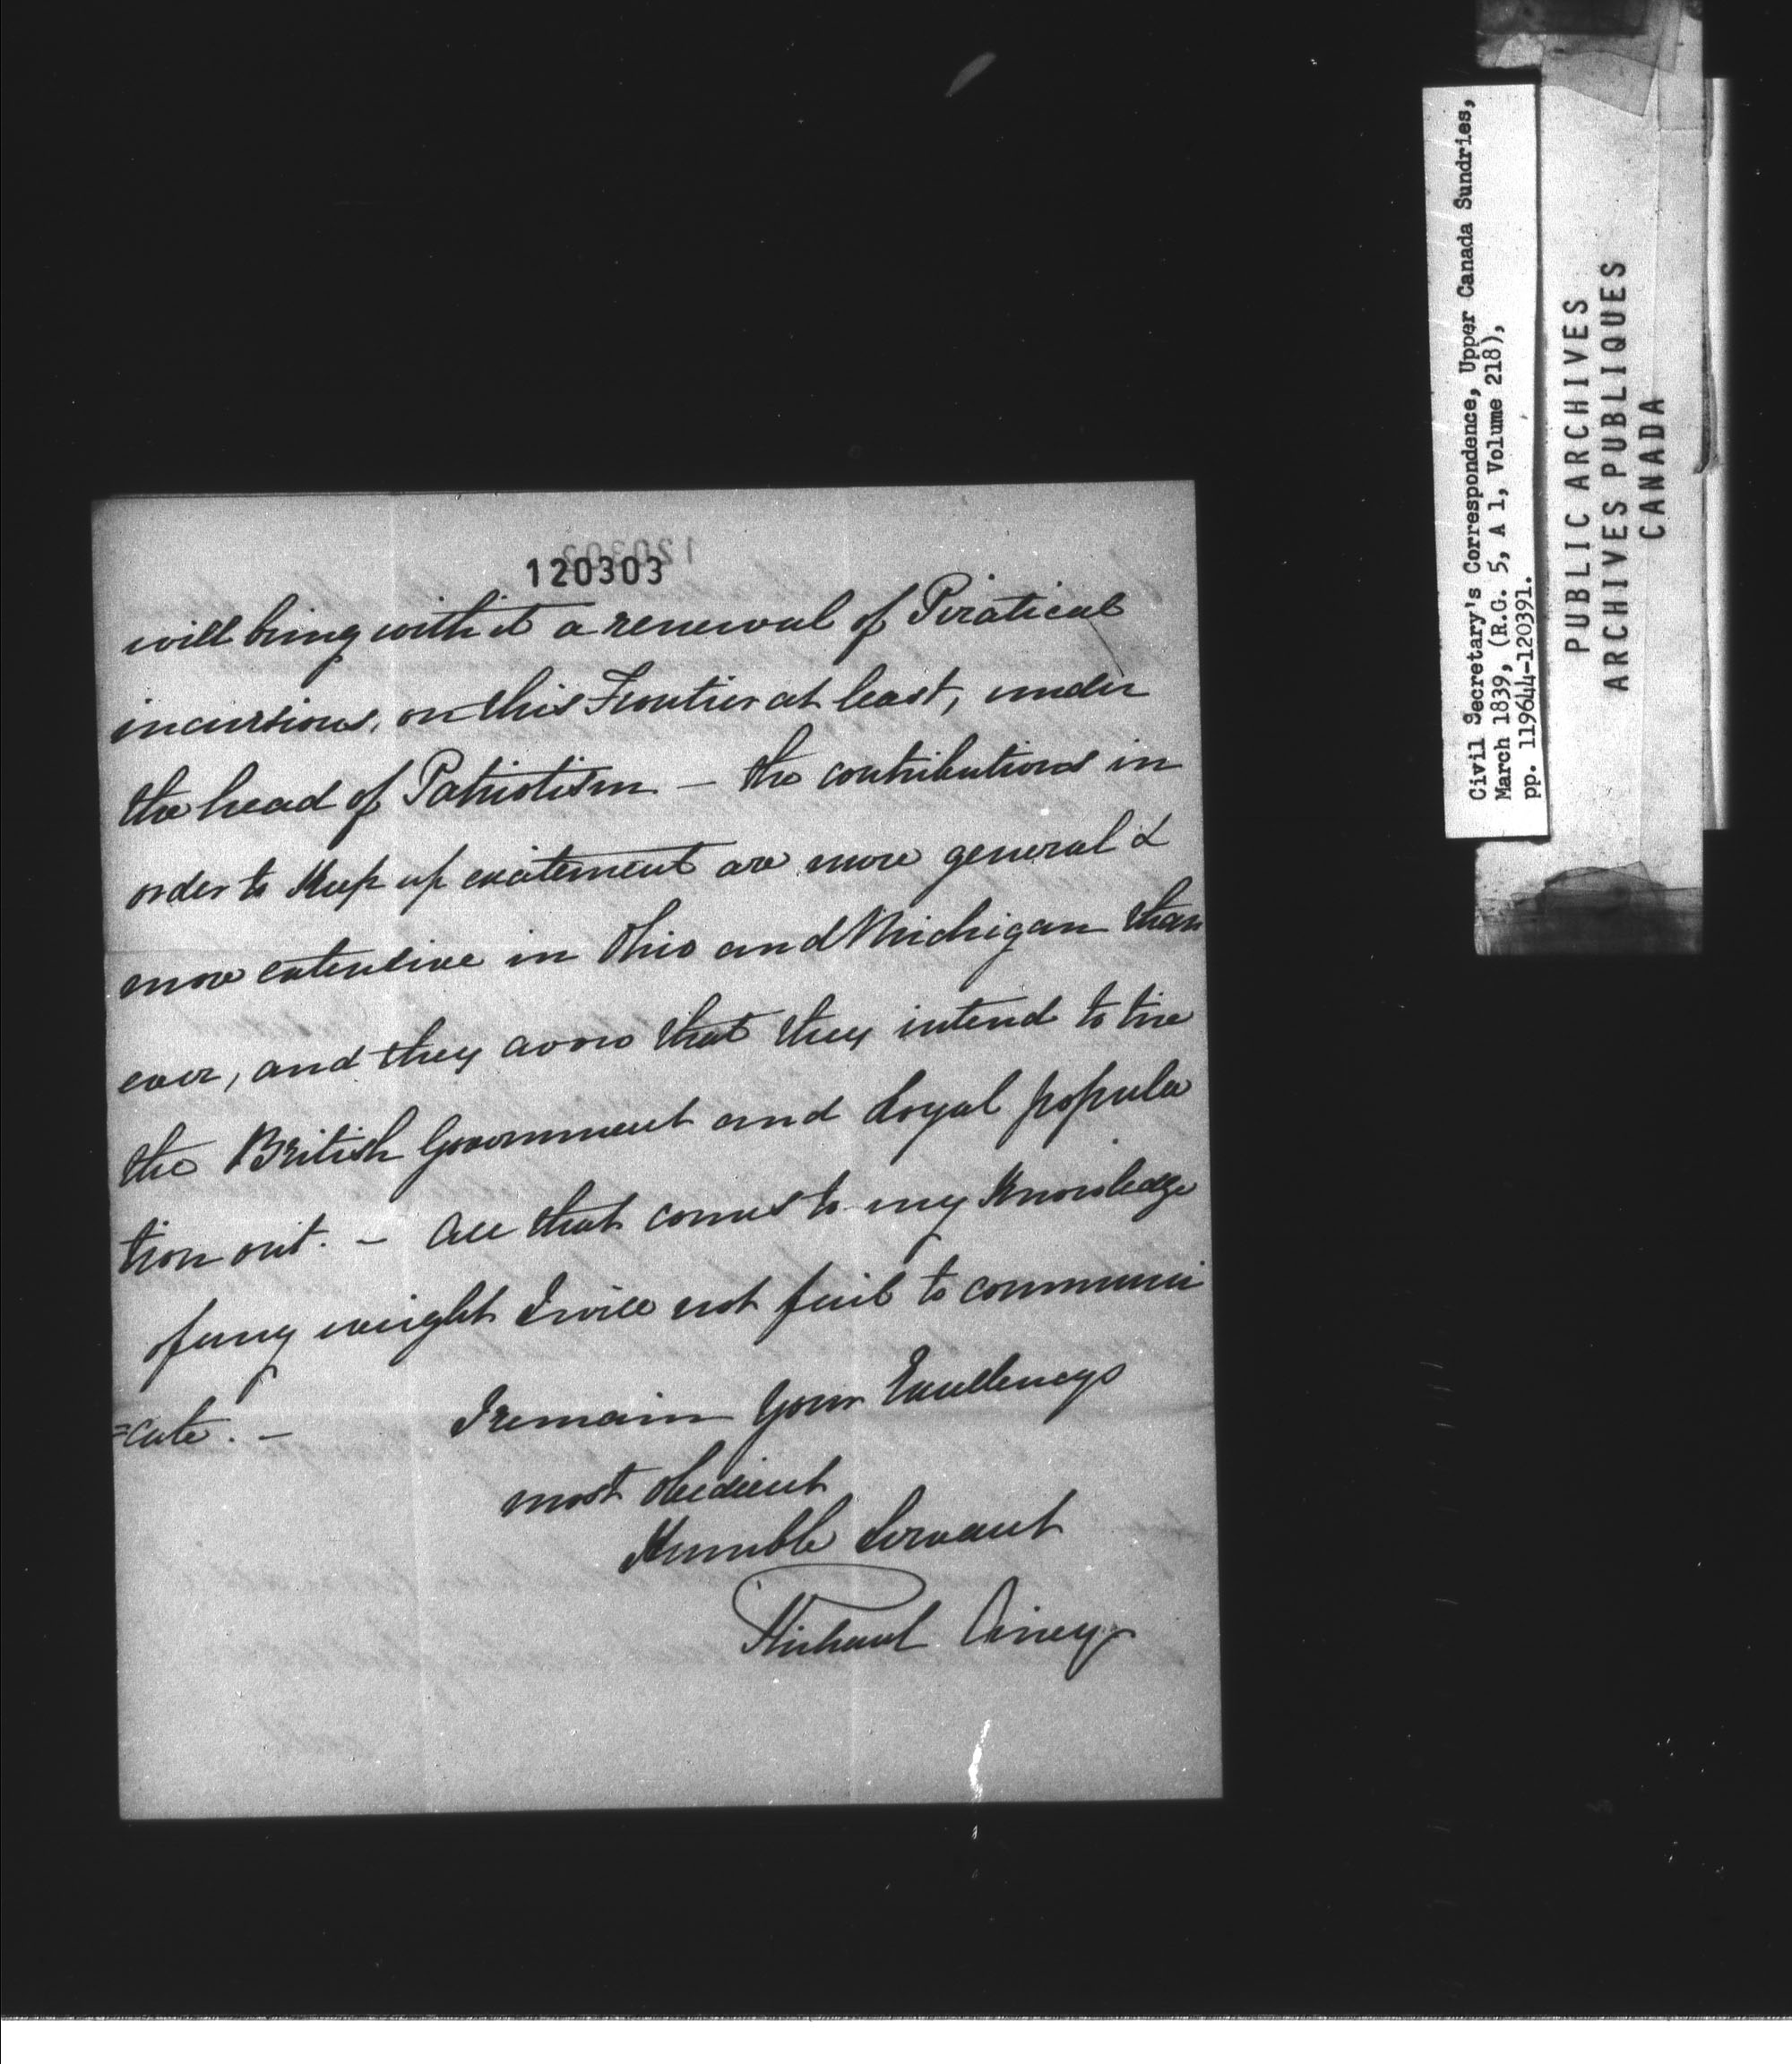 120303
will bring with it a renewal of Piratical
incursions, on this Frontier at least, under
the head of Patriotism — the contributions in
order to Keep up excitement are more general &
more extensive in Ohio and Michigan than
ever, and they avow that they intend to tire
the British Government and Loyal popula
tion out. — All that comes to my Knowledge
of any weight I will not fail to communi
=cate. — I remain Your Excellencys
most obedient
Humble Servant
Michael Airey
Civil Secretary's Correspondence, Upper Canada Sundries,
March 1839, (R.G. 5, A 1, Volume 218),
pp. 119644-120391.
PUBLIC ARCHIVES
ARCHIVES PUBLIQUES
CANADA